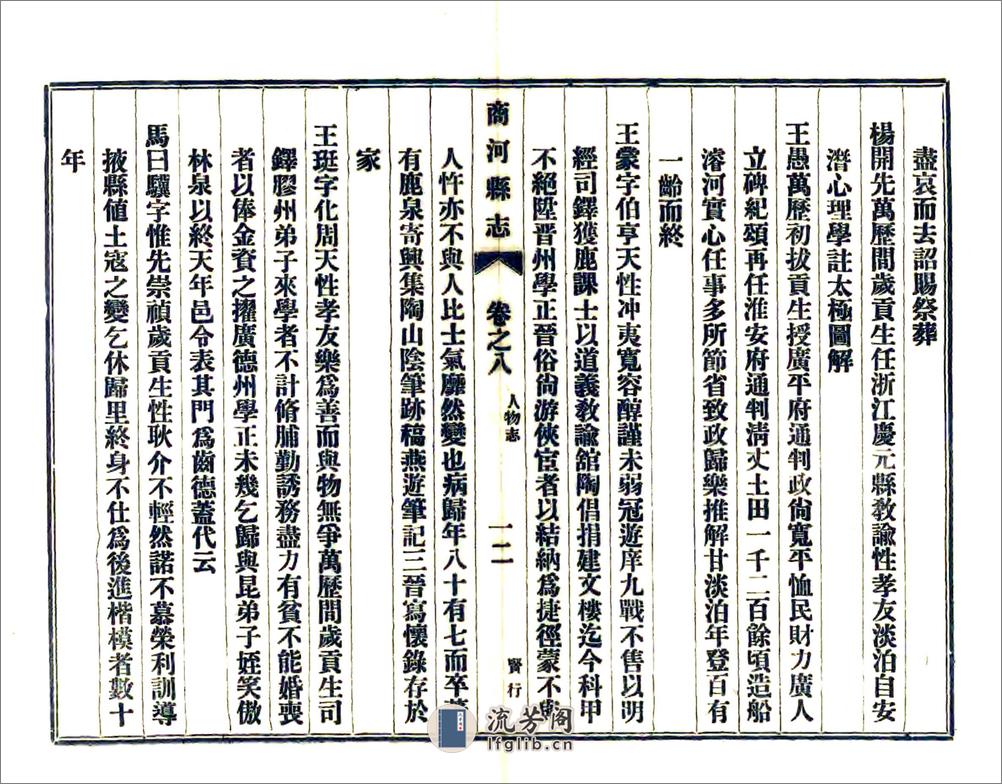 盡哀而去詔賜祭葬
楊開先萬歷間歲貢生任浙江慶元縣敎諭性孝友淡泊自安
潛心理學註太極圖解
王愚萬歷初拔貢生授廣平府通判政尙寬平恤民財力廣人
立碑紀頌再任淮安府通判淸丈土田一千二百餘頃造船
濬河實心任事多所節省致政歸樂推解甘淡泊年登百有
一齡而終
王蒙字伯亨天性冲夷寬容醇謹未弱冠遊庠九戰不售以明
經司鐸獲鹿課士以道義敎諭舘陶倡捐建文樓迄今科甲
不絕陞晋州學正晉俗尙游俠宦者以結納爲捷徑蒙不
商河縣志
卷之八
人物志
一二
賢行
人忤亦不與人比士氣靡然變也病歸年八十有七而卒
有鹿泉寄興集陶山陰筆跡稿燕遊筆記三晉寫懷錄存於
家
王珽字化周天性孝友樂爲善而與物無爭萬歷間歲貢生司
鐸膠州弟子來學者不計脩脯勤誘務盡力有貧不能婚喪
者以俸金資之擢廣德州學正未幾乞歸與昆弟子姪笑傲
林泉以終天年邑令表其門爲齒德蓋代云
馬曰驥字惟先崇禎歲貢生性耿介不輕然諾不慕榮利訓導
掖縣値土寇之變乞休歸里終身不仕爲後進楷模者數十
年
流芳阁
lfglib.cn